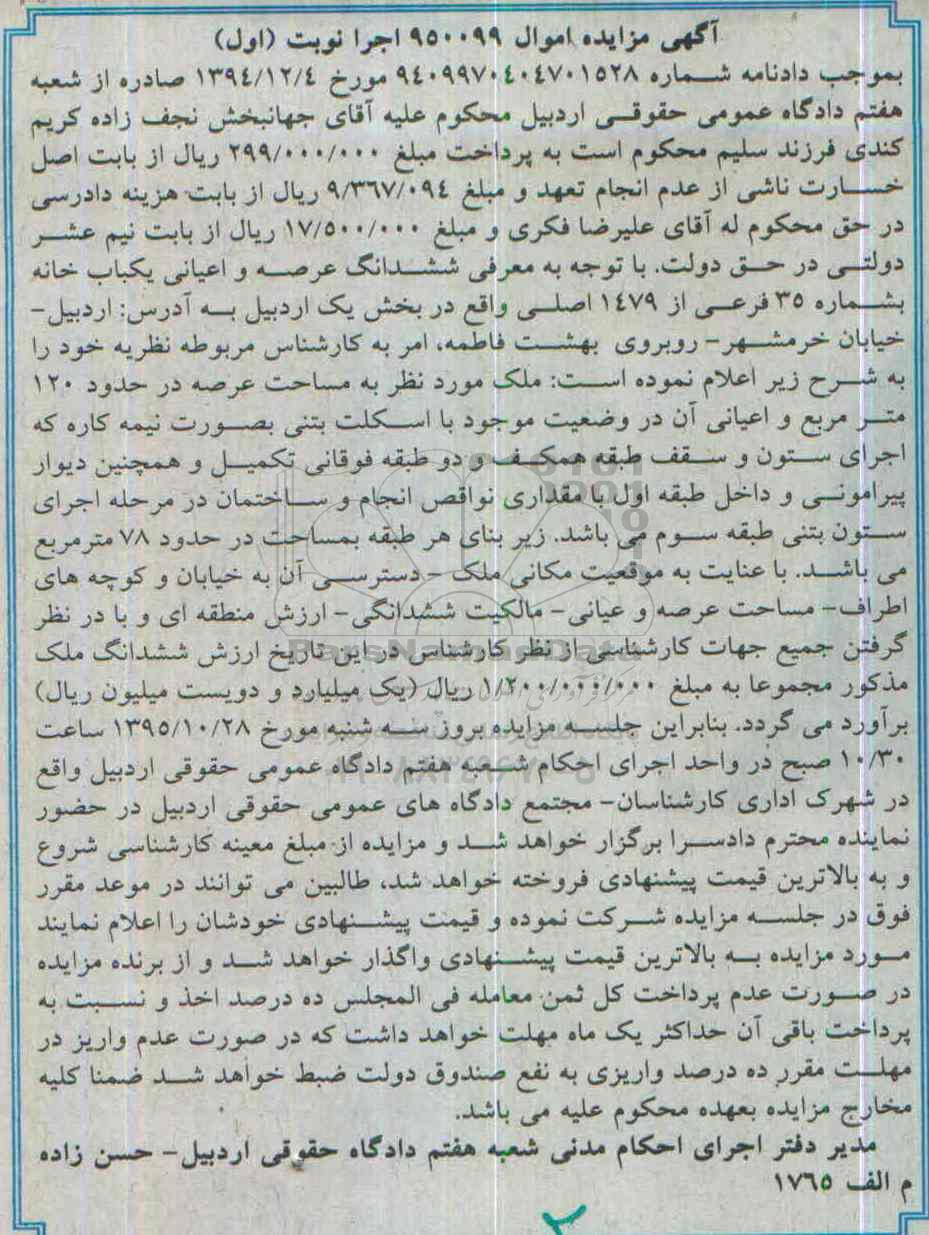 آگهی مزایده اموال ۹۵۰۰۹۹ اجرا نوبت (اول)
بموجب دادنامه شماره ۹٤۰۹۹۷۰٤۰٤۷۰۱۵۲۸ مورخ ۱۳۹٤/۱۲/٤ صادره از شعبه
هفتم دادگاه عمومی حقوقی اردبیل محکوم علیه آقای جهانبخش نجف زاده کریم
کندی فرزند سلیم محکوم است به پرداخت مبلغ ۲۹۹/۰۰۰/۰۰۰ ریال از بابت اصل
خسارت ناشی از عدم انجام تعهد و مبلغ ۹/۳٦۷/۰۹٤ ریال از بابت هزینه دادرسی
در حق محکوم له آقای علیرضا فکری و مبلغ ۱۷/۵۰۰/۰۰۰ ریال از بابت نیم عشر
دولتی در حق دولت. با توجه به معرفی ششدانگ عرصه و اعیانی یکباب خانه
بشماره ۳۵ فرعی از ۱٤۷۹ اصلی واقع در بخش یک اردبیل به آدرس: اردبیل-
خیابان خرمشهر- روبروی بهشت فاطمه، امر به کارشناس مربوطه نظریه خود را
به شرح زیر اعلام نموده است: ملک مورد نظر به مساحت عرصه در حدود ۱۲۰
متر مربع و اعیانی آن در وضعیت موجود با اسکلت بتنی بصورت نیمه کاره که
اجرای ستون و سقف طبقه همکف و دو طبقه فوقانی تکمیل و همچنین دیوار
پیرامونی و داخل طبقه اول با مقداری نواقص انجام و ساختمان در مرحله اجرای
ستون بتنی طبقه سوم می باشد. زیر بنای هر طبقه بمساحت در حدود ۷۸ مترمربع
می باشد. با عنایت به موقعیت مکانی ملک - دسترسی آن به خیابان و کوچه های
اطراف- مساحت عرصه و عیانی- مالکیت ششدانگی- ارزش منطقه ای و با در نظر
گرفتن جمیع جهات کارشناسی از نظر کارشناس در این تاریخ ارزش ششدانگ ملک
مذکور مجموعا به مبلغ ۱/۲۰۰/۰۰۰/۰۰۰ ریال (یک میلیارد و دویست میلیون ریال)
برآورد می گردد. بنابراین جلسه مزایده بروز سه شنبه مورخ ۱۳۹۵/۱۰/۲۸ ساعت
۱۰/۳۰ صبح در واحد اجرای احکام شعبه هفتم دادگاه عمومی حقوقی اردبیل واقع
در شهرک اداری کارشناسان- مجتمع دادگاه های عمومی حقوقی اردبیل در حضور
نماینده محترم دادسرا برگزار خواهد شد و مزایده از مبلغ معینه کارشناسی شروع
و به بالاترین قیمت پیشنهادی فروخته خواهد شد، طالبین می توانند در موعد مقرر
فوق در جلسه مزایده شرکت نموده و قیمت پیشنهادی خودشان را اعلام نمایند
مورد مزایده به بالاترین قیمت پیشنهادی واگذار خواهد شد و از برنده مزایده
در صورت عدم پرداخت کل ثمن معامله فی المجلس ده درصد اخذ و نسبت به
پرداخت باقی آن حداکثر یک ماه مهلت خواهد داشت که در صورت عدم واریز در
مهلت مقرر ده درصد واریزی به نفع صندوق دولت ضبط خواهد شد ضمنا کلیه
مخارج مزایده بعهده محکوم علیه می باشد.
مدیر دفتر اجرای احکام مدنی شعبه هفتم دادگاه حقوقی اردبیل- حسن زاده
م الف ۱۷٦۵
۲
ParsNamadData